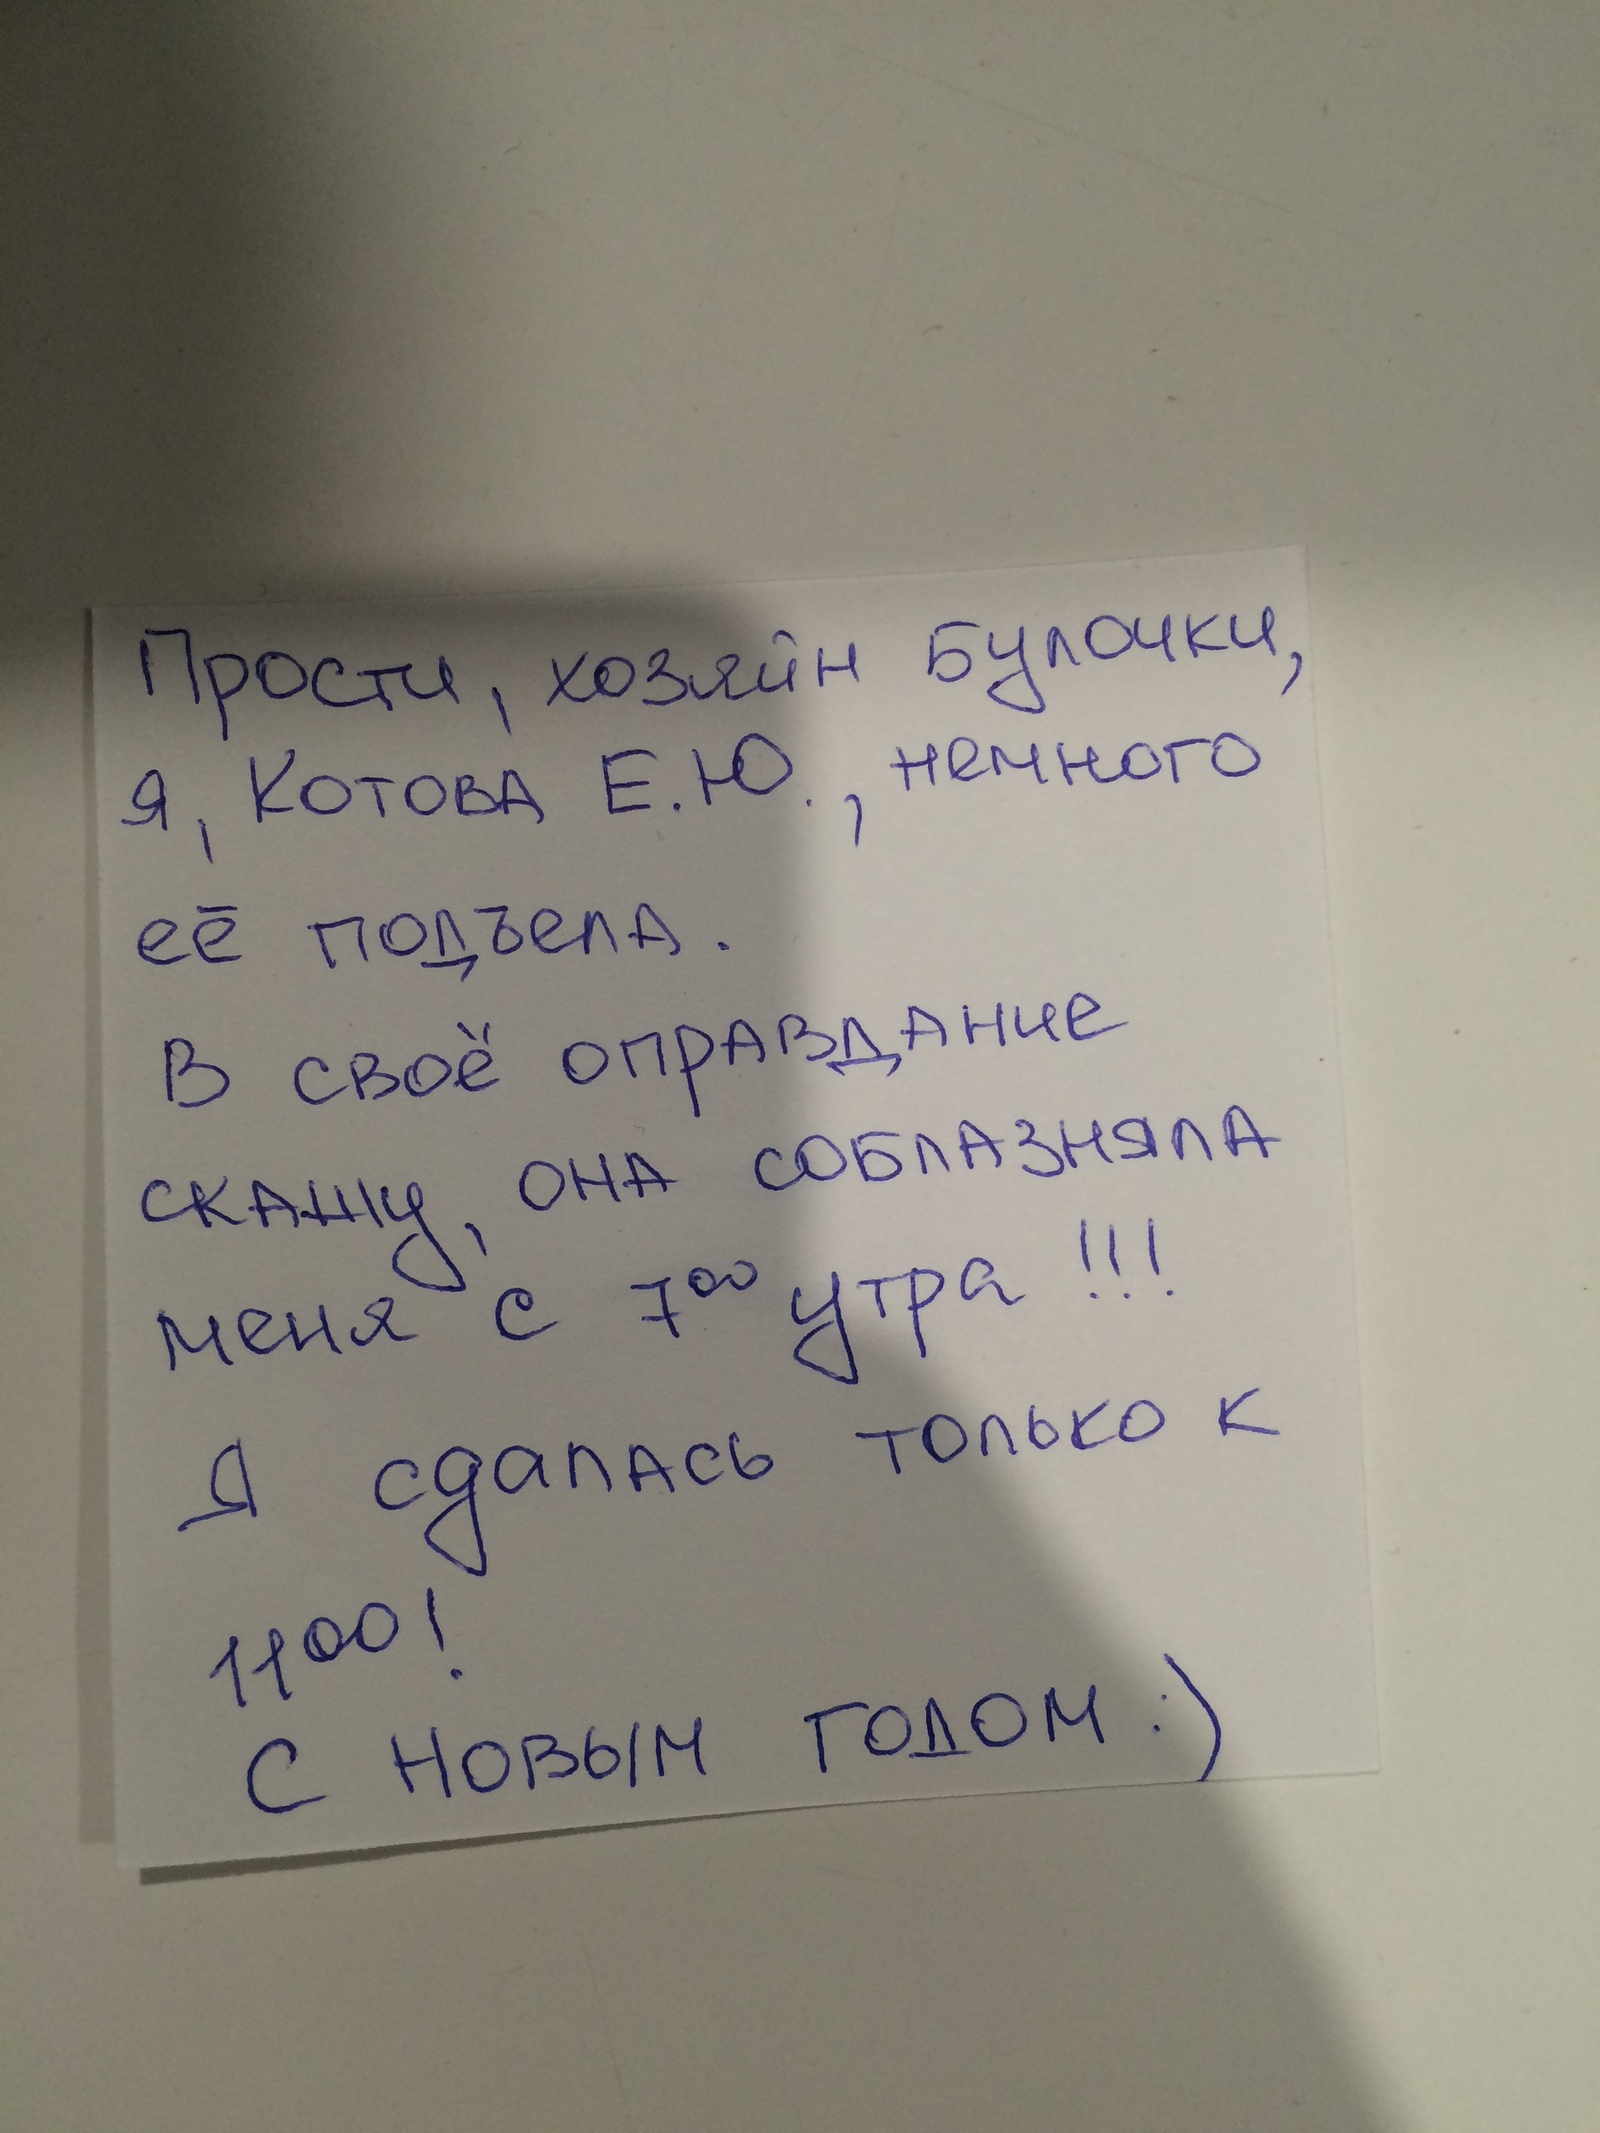 Прости, хозяйн Булочки,
я, Котова Е.Ю., немного
её подъела.
В своё оправдание
скажу, она соблазняла
меня с 7⁰⁰ утра !!!
Я сдалась только к
11⁰⁰!
С новым годом :)